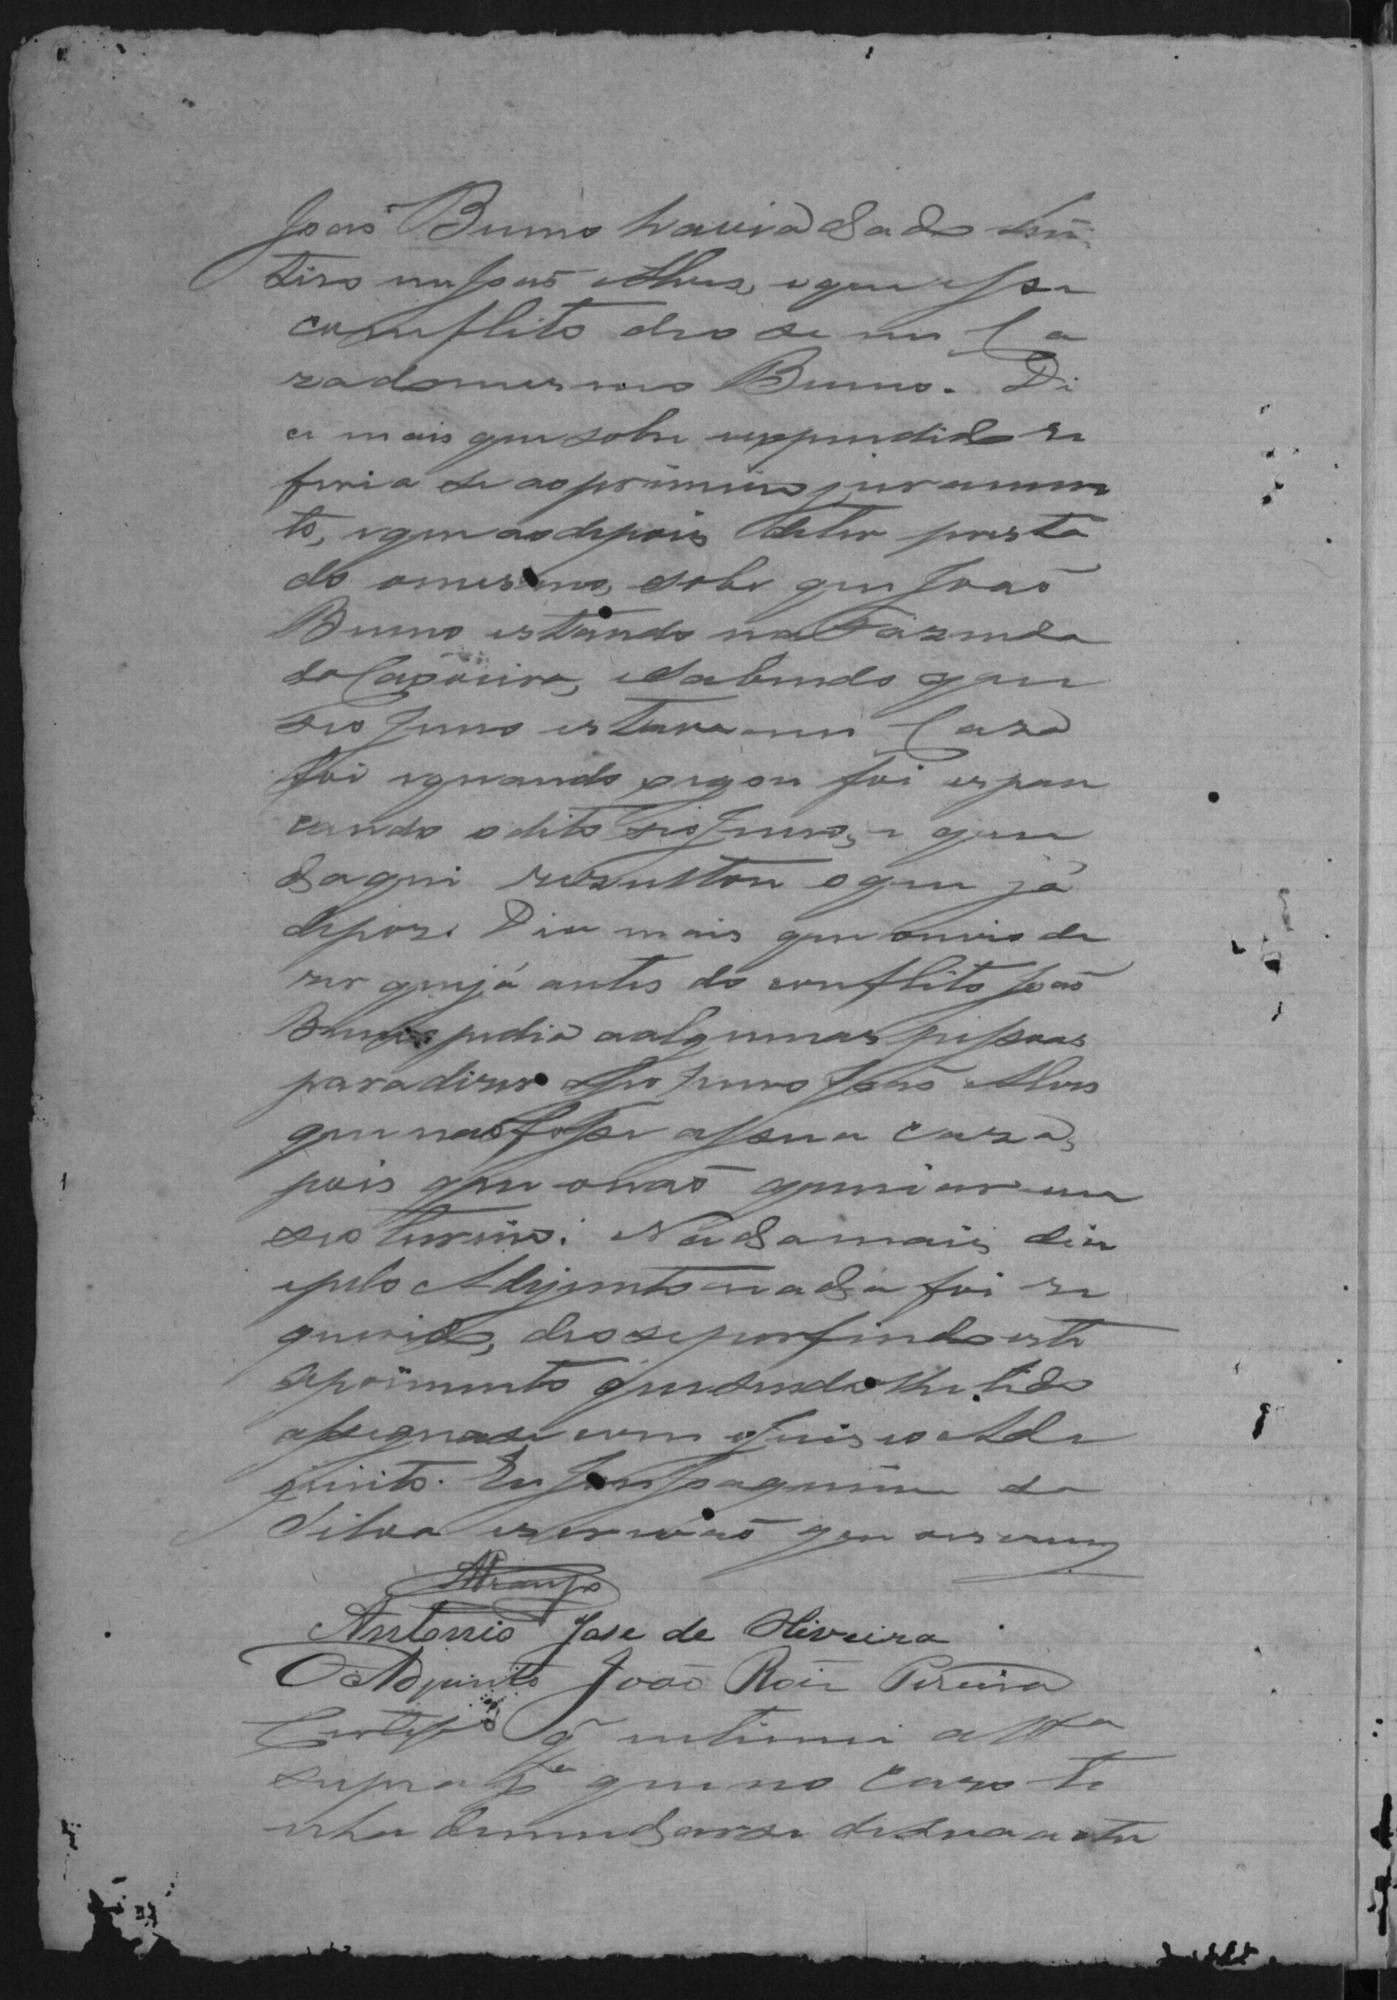 João Bueno havia dado um
tiro em João Alves, e que esse
conflito deo se em Ca
za do mesmo Bueno. Di
ce mais que sobre respondido re
feria se ao primeiro juramen
to, e que ao depois de ter presta
do o mesmo, sobe que João
Bueno estando na Fazenda
da Capoeira, e sabendo que
seo genro estava em Caza
foi e quando xegou foi espan
cando o dito seo genro, e que
daqui rezultou o que já
depoz. Dice mais que ouvio di
zer que já antes do conflito João
Bueno pedia a algumas pessoas
para dizer a seo genro João Alves
que não fosse a sua caza,
pois que o não queria ver em
seo terreiro. Nada mais dice
e pelo Adjunto nada foi re
querido, deo se por findo este
depoimento que sendo lhe lido
assigna se com o Juis e o Ad
junto. Eu José Joaquim da
Silva escrivão que o escrevy
Araujo
Antonio Jose de Oliveira
O Adjunto João Roiz Pereira
Certifico q intimei a tta
supra pa que no cazo te
nha de mudar se de sua